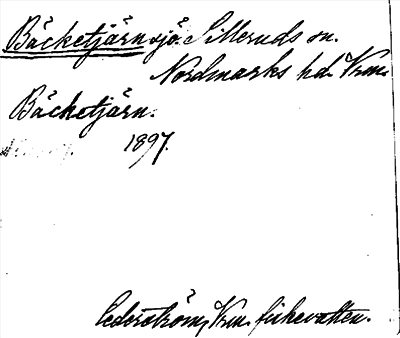 Bäcketjärn, sjö. Silleruds sn.
Nordmarks hd. Vrm.
Bäcketjärn.
1897.
Cederström, Vrm. fiskevatten.